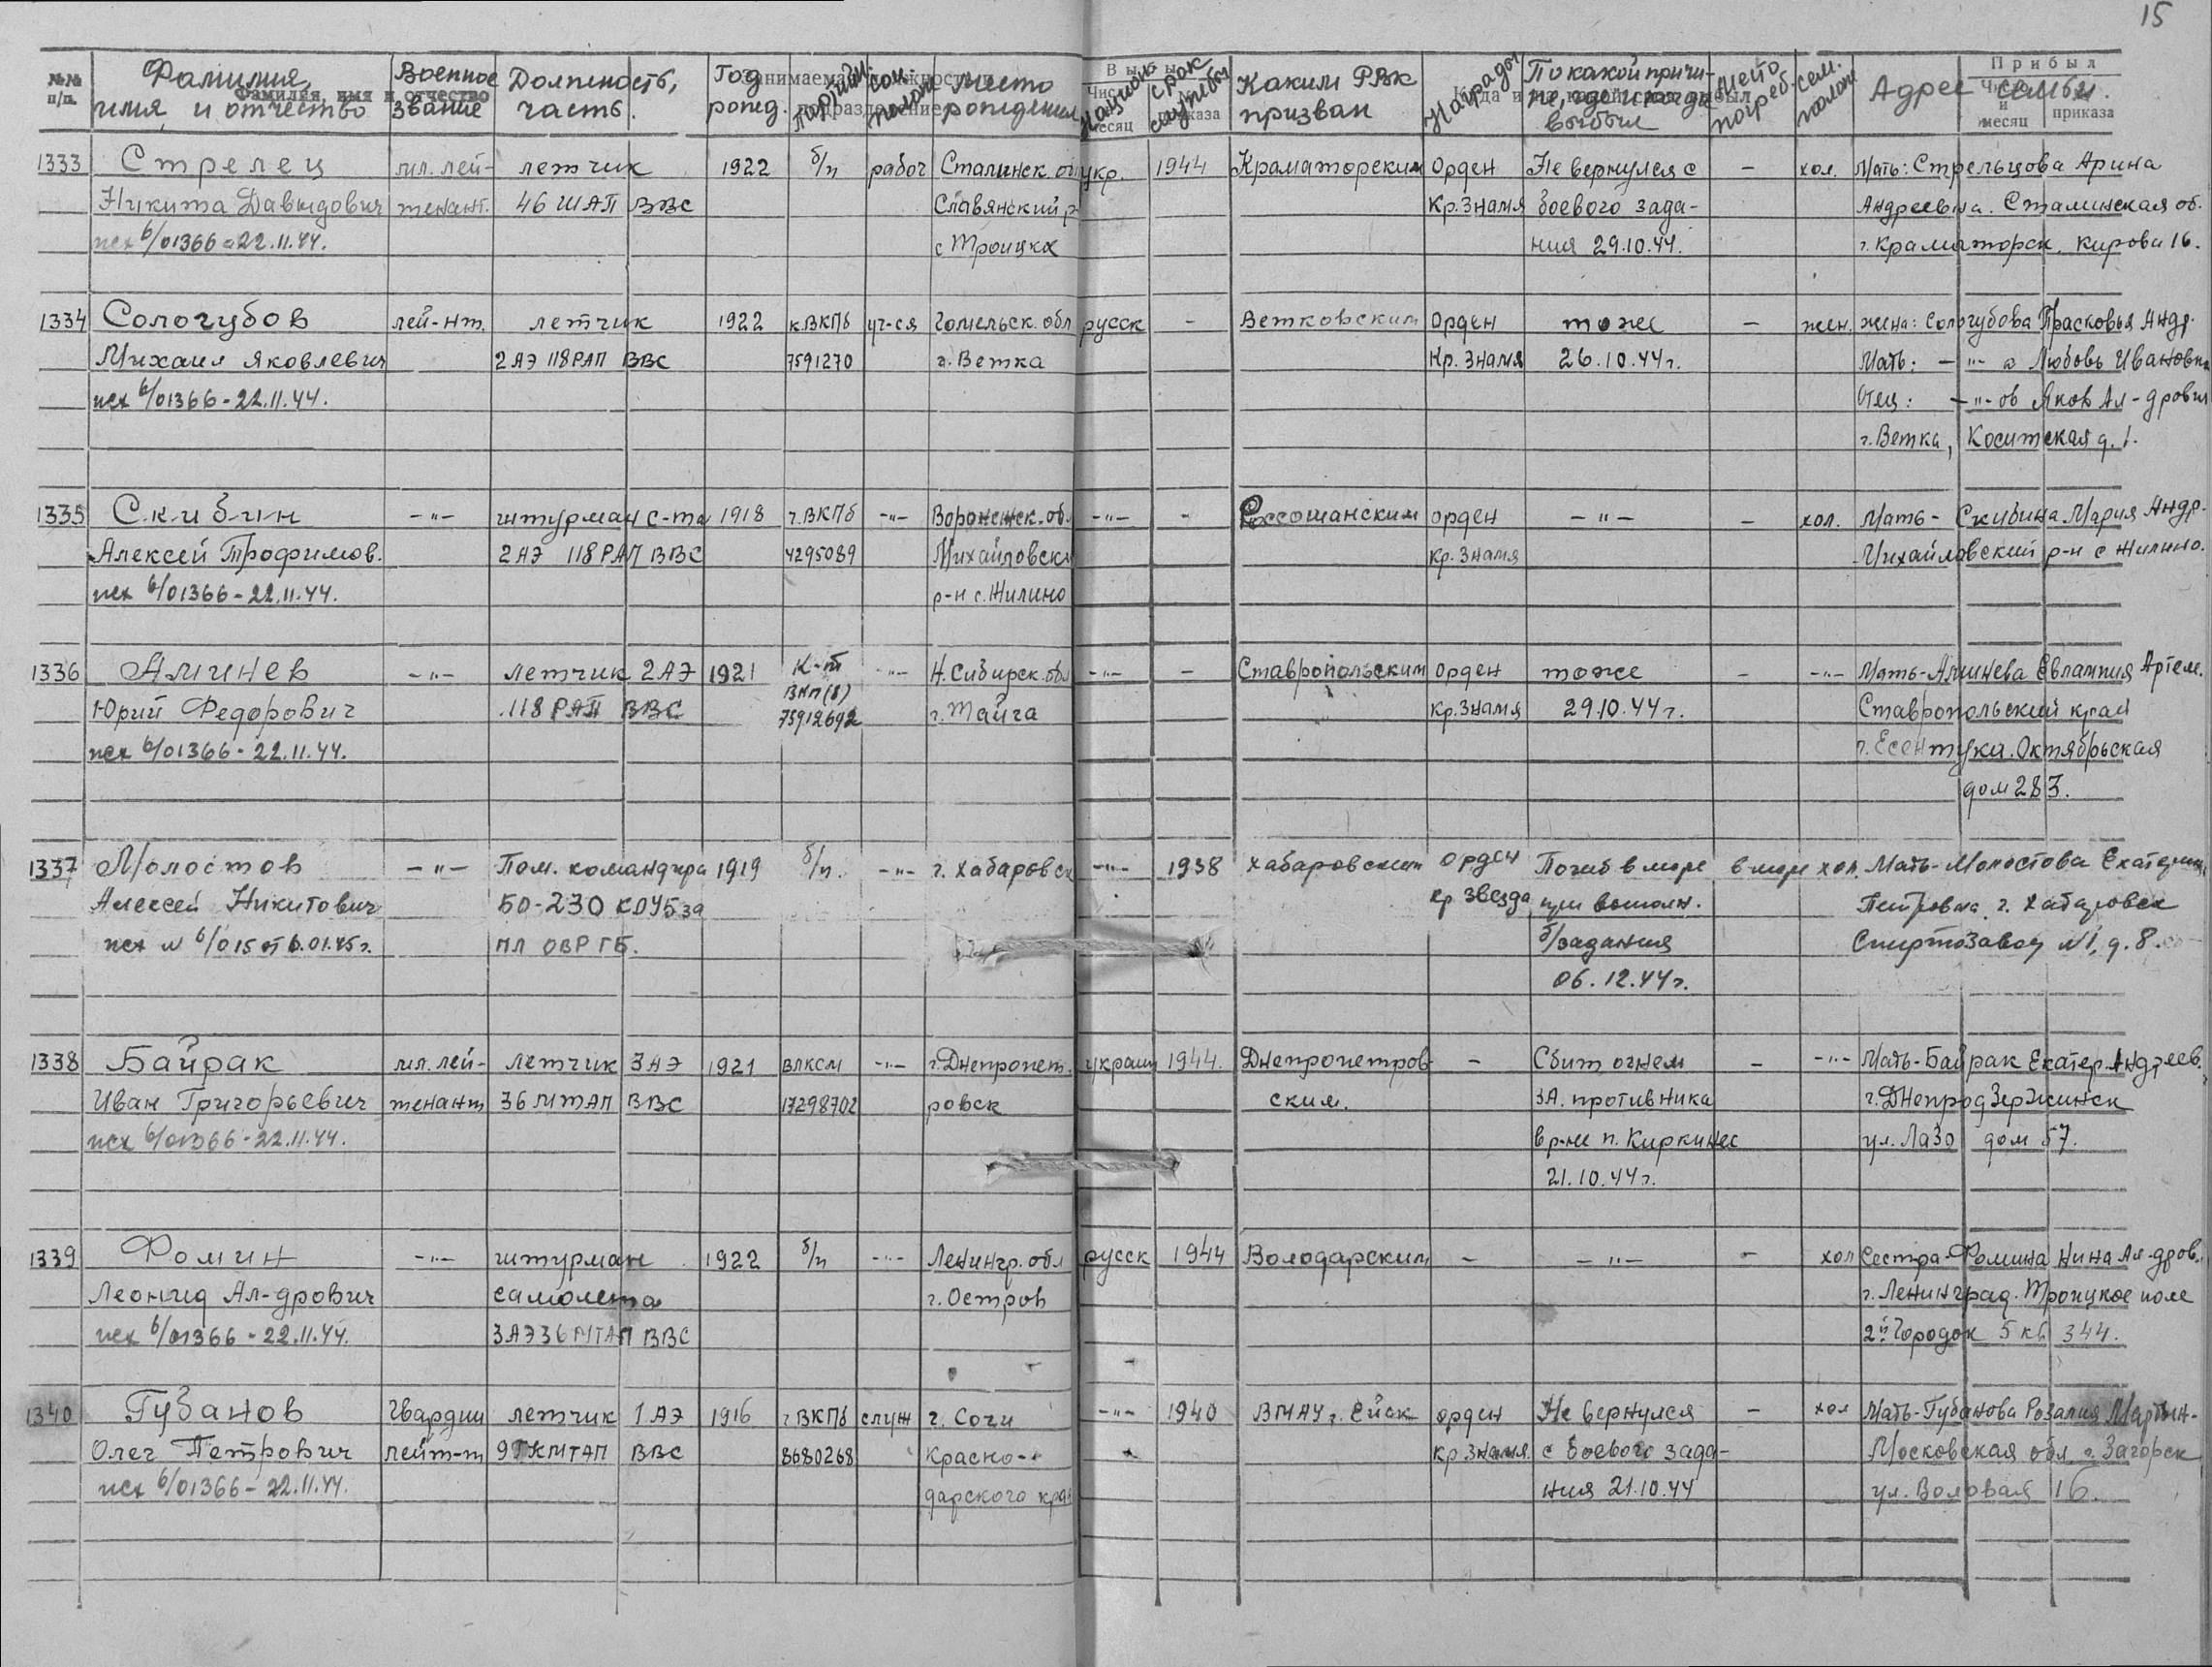 15
№№ п/п. Фамилия, имя и отчество Военное звание Должность, часть. Год рожд. партийн. соц. полож. Место рождения национ. срок службы Каким РВК призван Награды По какой причине, где и когда выбыл место погреб. сем. полож Адрес семьи.
Фамилия, имя и отчество Занимаемая должность подразделение Выбыл Число месяц № приказа Прибыл Число и месяц № приказа
1333 Стрелец мл. лей- летчик 1922 б/п рабоч Сталинск. обл укр. 1944 Краматорским Орден Не вернулся с — хол. Мать: Стрельцова Арина
Никита Давыдович тенант. 46 ШАП ВВС Славянский р Кр. Знамя боевого зада- Андреевна. Сталинская об.
исх б/01366-22.11.44. с Троицка ния 29.10.44. г. Краматорск. Кирова 16.
1334 Сологубов лей-нт. летчик 1922 к.ВКПб уч-ся Гомельск. обл русск - Ветковским Орден тоже — жен. жена: Сологубова Прасковья Андр.
Михаил Яковлевич 2 АЭ 118 РАП ВВС 7591270 г. Ветка Кр. Знамя 26.10.44г. Мать: —"— а Любовь Ивановна
исх б/01366-22.11.44. Отец: —"— ов Яков Ал-дрович
г. Ветка, Коситская д. 1.
1335 Скибин —"— штурман с-та 1918 ч.ВКПб —"— Воронежск. обл —"— - Россошанским орден —"— — хол. Мать- Скибина Мария Андр.
Алексей Трофимов. 2 АЭ 118 РАП ВВС 4295089 Михайловск кр. Знамя Михайловский р-н с Жилино.
исх б/01366-22.11.44. р-н с. Жилино
1336 Аминев —"— летчик 2 АЭ 1921 К-т —"— Н. Сибирск. обл —"— — Ставропольским орден тоже — —"— Мать-Аминева Евлампия Артем.
Юрий Федорович 118 РАП ВВС ВКП(б) 75912692 г. Тайга кр. Знамя 29.10.44г. Ставропольский край
исх б/01366-22.11.44. г. Есентуки. Октябрьская
дом 283.
1337 Молостов —"— Пом. командира 1919 б/п. —"— г. Хабаровск —"— 1938 Хабаровским орден Погиб в море в море хол. Мать-Молостова Екатерина
Алексей Никитович БО-230 кр Звезда при выполн. Петровна г. Хабаровск
исх № б/015 от 6.01.45г. ПЛ ОВР ГБ. б/задания Спиртозавод №1, д. 8.
06.12.44г.
1338 Байрак мл. лей- летчик 3 АЭ 1921 ВЛКСМ —"— г. Днепропет. украин 1944. Днепропетров- — Сбит огнем — —"— Мать-Байрак Екатер. Андреев.
Иван Григорьевич тенант 36 МТАП ВВС 17298702 ровск ским. ЗА. противника г. Днепродзержинск
исх б/01366-22.11.44. в р-не п. Киркинес ул. Лазо дом 57.
21.10.44г.
1339 Фомин —"— штурман 1922 б/п —"— Ленингр. обл русск 1944 Володарским — —"— — хол Сестра-Фомина Нина Ал-дров.
Леонид Ал-дрович самолета г. Остров г. Ленинград. Троицкое поле
исх б/01366-22.11.44. 3 АЭ 36 МТАП ВВС 2й городок 5 кв 344.
1340 Губанов Гвардии летчик 1 АЭ 1916 ч ВКПб служ г. Сочи —"— 1940 ВМАУ г. Ейск орден Не вернулся — хол Мать-Губанова Розалия Мартын-
Олег Петрович лейт-т 9 ГКМТАП ВВС 8680268 Красно- кр. Знамя. с боевого зада- Московская обл. г. Загорск
исх б/01366-22.11.44. дарского края ния 21.10.44 ул. Воловая 16.